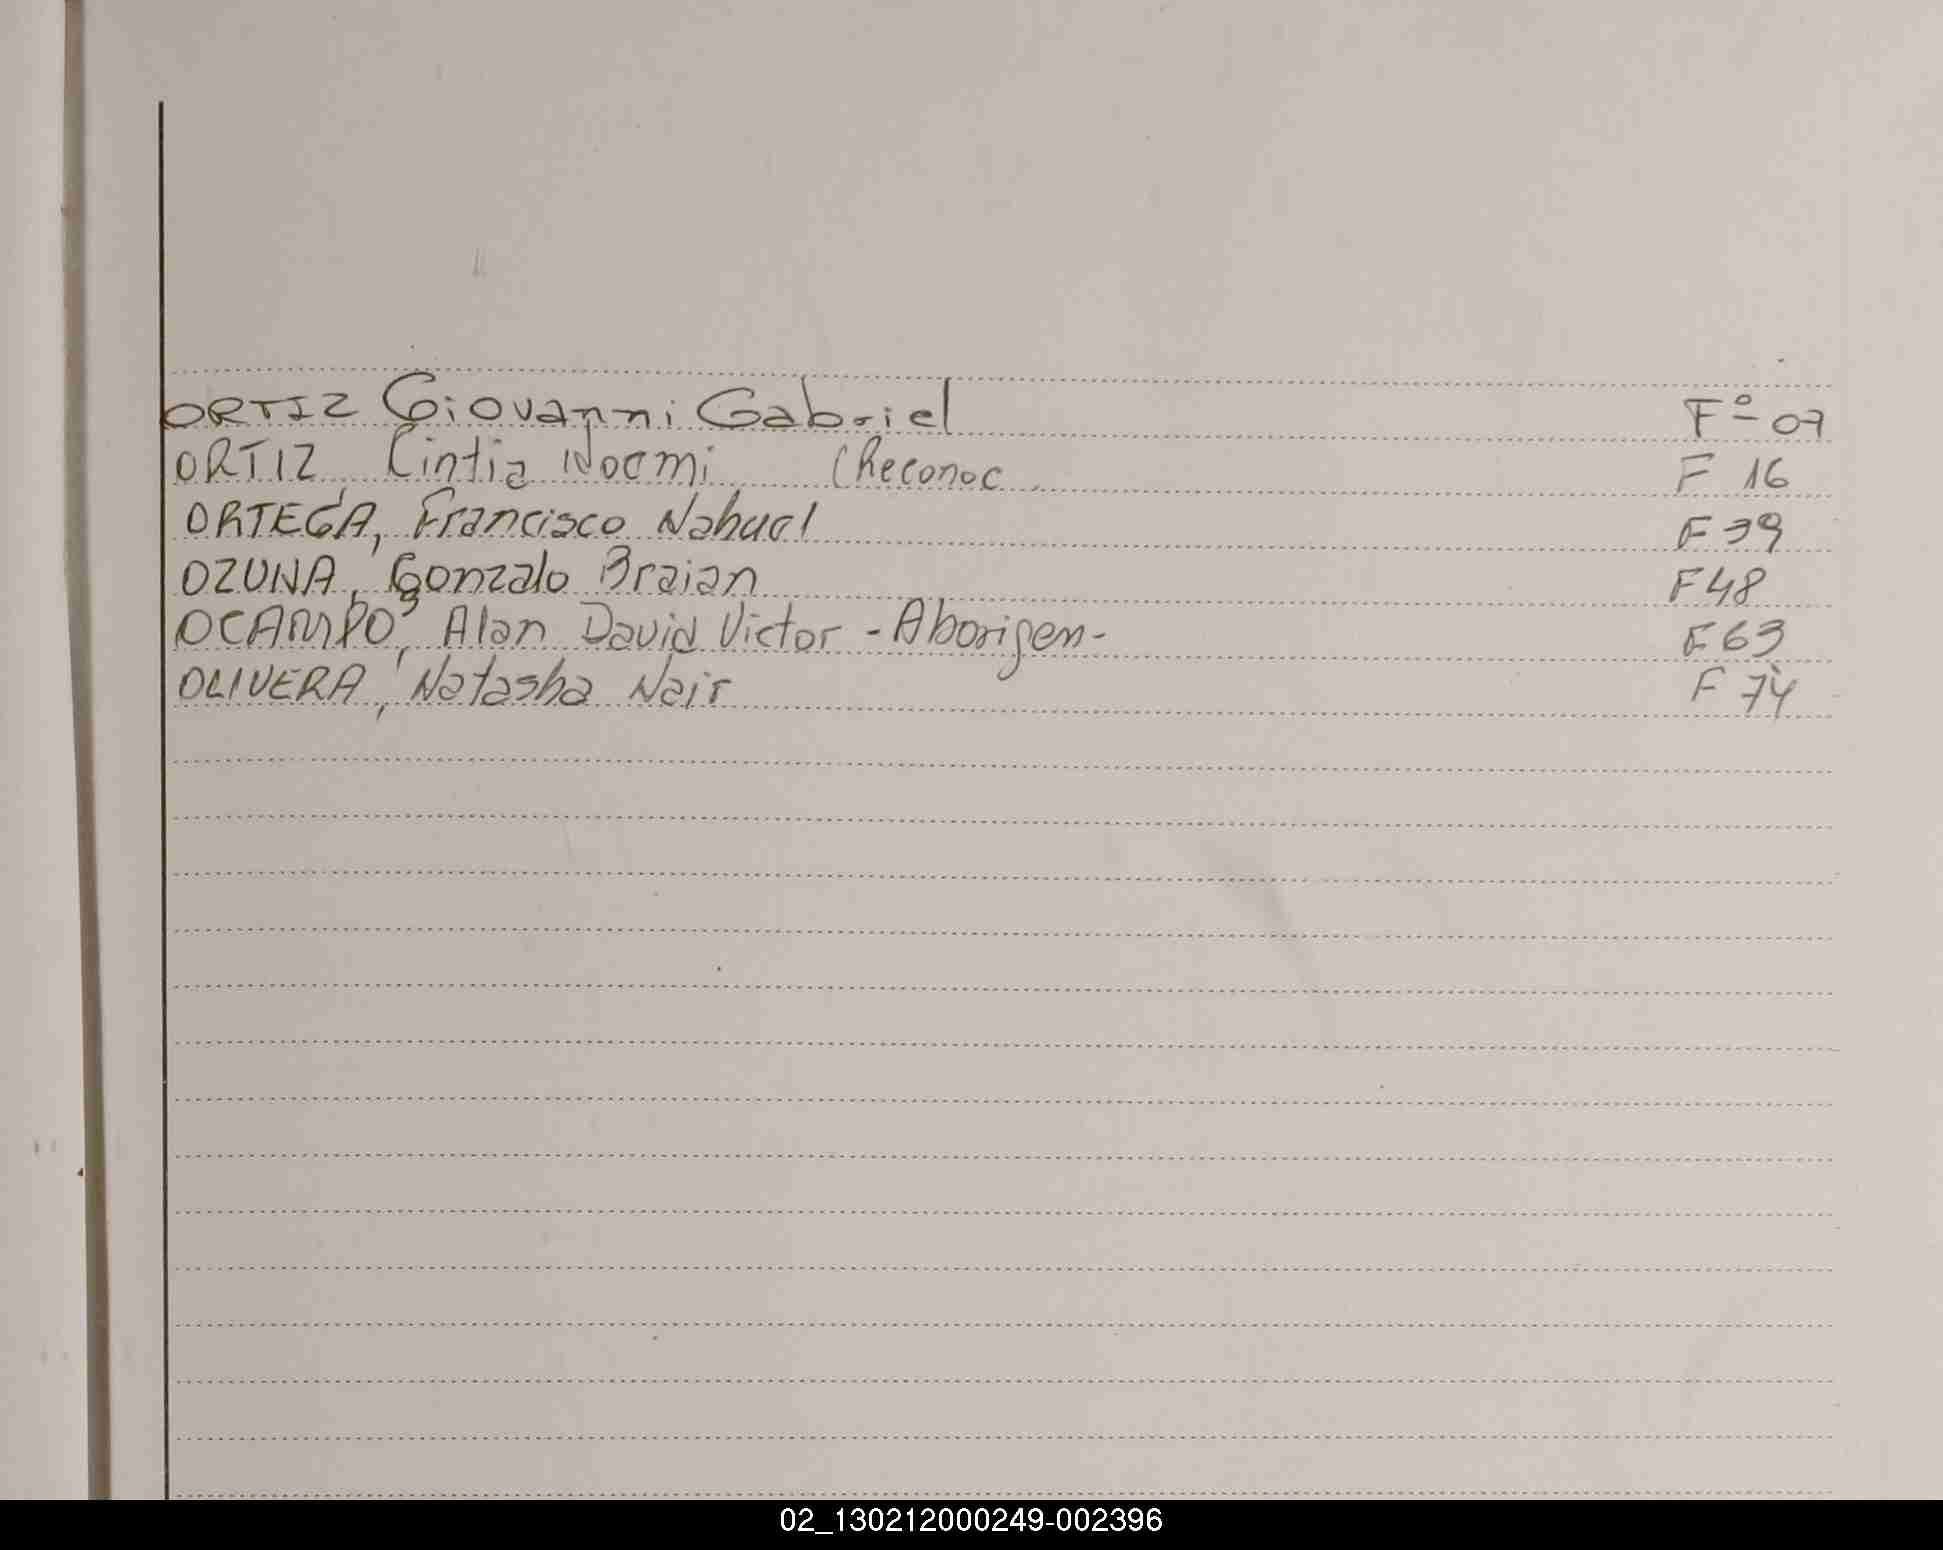 ORTIZ Giovanni Gabriel F° 07
ORTIZ, Cintia Noemi (Reconoc F 16
ORTEGA, Francisco Nahuel F 39
OZUNA, Gonzalo Braian F 48
OCAMPO, Alan David Victor - Aborigen - F 63
OLIVERA, Natasha Nair F 74
02_130212000249-002396